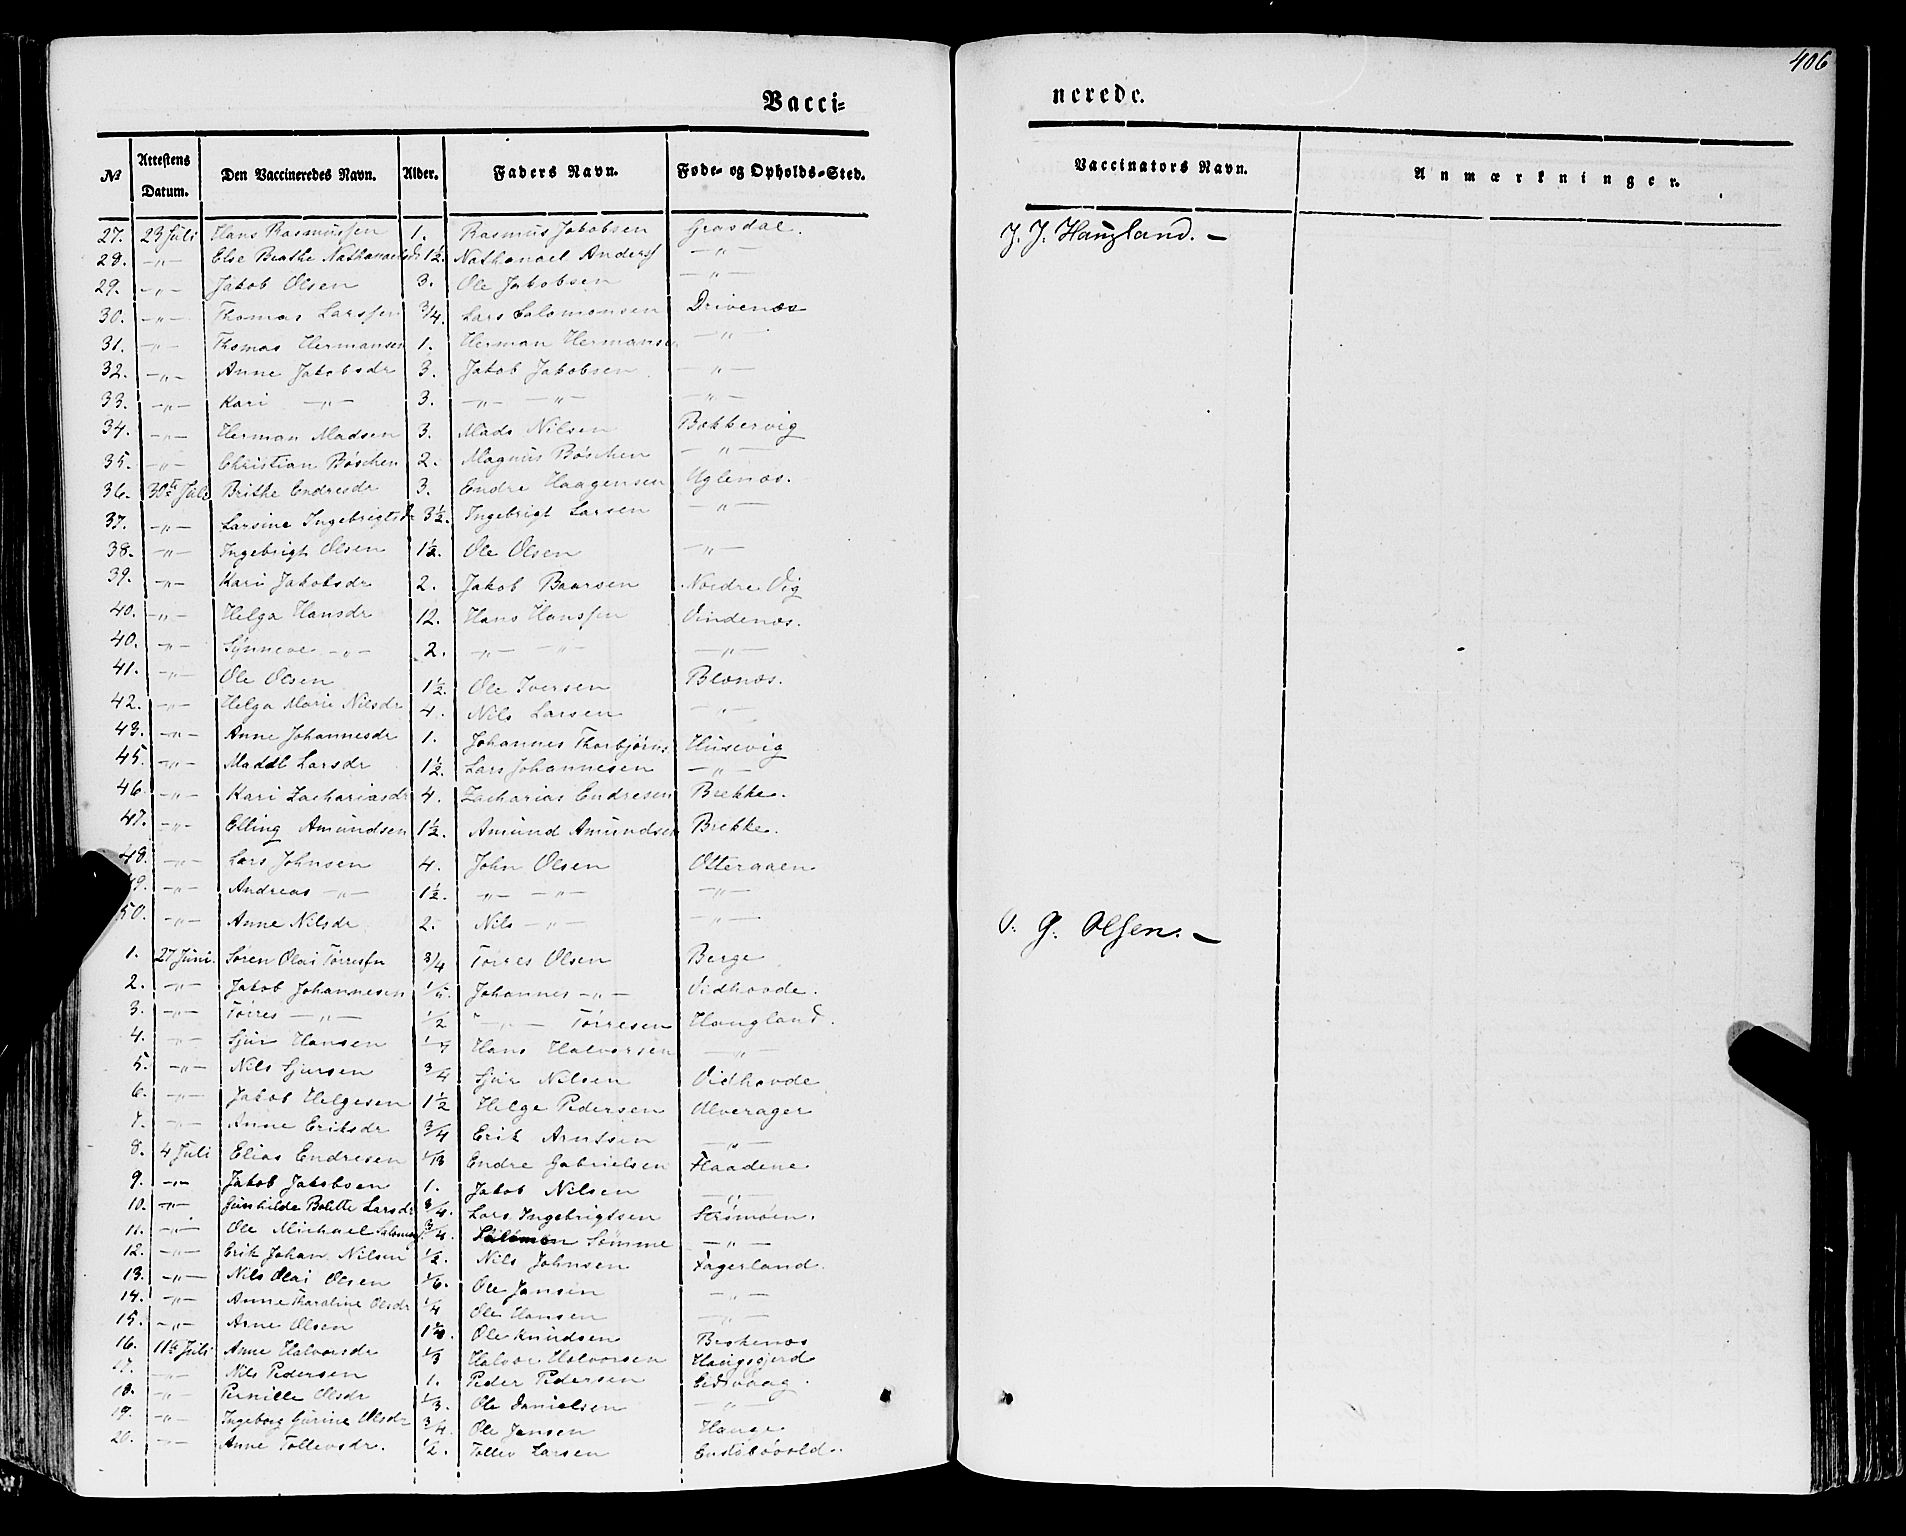 406
Vacci-
nerede.
No Attestens Datum. Den Vaccineredes Navn. Alder. Faders Navn. Føde- og Opholds-Sted. Vaccinators Navn. Anmærkninger.
27. 23 Juli Hans Rasmussen 1. Rasmus Jakobsen Grosdal. J. J. Haugland. —
28. —"— Else Brathe Nathanaelsd. 1½ Nathanael Anders —"—
29. —"— Jakob Olsen 3. Ole Jakobsen —"—
30. —"— Thomas Larssen 3/4. Lars Salomonsen Drivenæs
31. —"— Thomas Hermansen 1. Herman Hermansen —"—
32. —"— Anne Jakobsdr 3. Jakob Jakobsen —"—
33. —"— Kari —"— 3. —"— —"— —"—
34. —"— Herman Madsen 3. Mads Nilsen Bokkervig
35. —"— Christian Bøschen 2. Magnus Bøschen —"—
36. 30te Juli Brithe Endresdr 3. Endre Haagensen Uglenæs.
37. —"— Larsine Ingebrigtsdr 3½. Ingebrigt Larsen —"—
38. —"— Ingebrigt Olsen 1½. Ole Olsen —"—
39. —"— Kari Jakobsdr 2. Jakob Baarsen Nordre Vig
40. —"— Helga Hansdr 12. Hans Hanssen Vindenæs.
40. —"— Synneve —"— 2. —"— —"— —"—
41. —"— Ole Olsen 1½. Ole Iversen Blænæs.
42. —"— Helga Marie Nilsdr 4. Nils Larsen —"—
43. —"— Anne Johannesdr 1. Johannes Thorbjørns Husevig
45. —"— Madel Larsdr 1½. Lars Johannesen —"—
46. —"— Kari Zachariasdr 4. Zacharias Endresen Brekke.
47. —"— Elling Amundsen 1½. Amund Amundsen Brekke.
48. —"— Lars Johnsen 4. John Olsen Otteraaen
49. —"— Andreas —"— 1½. —"— —"— —"—
50. —"— Anne Nilsdr 2. Nils —"— —"—
O. G. Olsen. —
1. 27 Juni. Søren Olai Tørresen 3/4 Tørres Olsen Berge
2. —"— Jakob Johannesen Johannes —"— Vidhovde.
3. —"— Tørres —"— 1/2 —"— Tørresen Haugland.
4. —"— Sjur Hansen Hans Halvorsen —"—
5. —"— Nils Sjursen 3/4 Sjur Nilsen Vidhovde
6. —"— Jakob Helgesen 1½ Helge Pedersen Alverager
7. —"— Anne Eriksdr 3/4 Erik Arntsen —"—
8. 4 Juli Elias Endresen Endre Gabrielsen Flaadene.
9. —"— Jakob Jakobsen 1. Jakob Nilsen —"—
10. —"— Gunhilde Bolette Larsdr 3/4. Lars Ingebrigtsen Strømøen.
11. —"— Ole Michael Salomons 3/4. Salomon Sømme —"—
12. —"— Erik Johan Nilsen 1/2. Nils Johnsen Fagerland.
13. —"— Nils Olai Olsen 1/6. Ole Jansen —"—
14. —"— Anne Tharaline Olsdr 1/4 Ole Hansen —"—
15. —"— Arne Olsen Ole Knudsen Beskenæs
16. 11te Juli Anne Halvorsdr 1/3 Halvor Halvorsen Haugsgjerd
17. —"— Nils Pedersen 1. Peder Pedersen Eidsvaag.
18. —"— Pernille Olsdr 1/3. Ole Danielsen —"—
19. —"— Ingeborg Gurine Olsdr 3/4. Ole Jensen Hauge
20. —"— Anne Tollevsdr. 1/2. Tollev Larsen